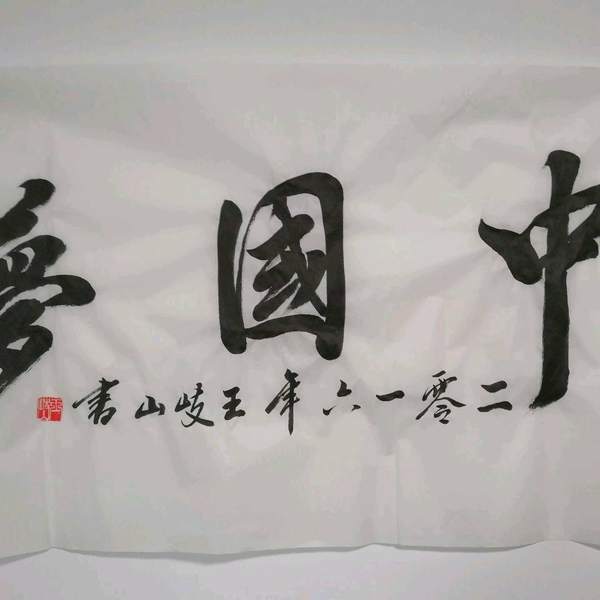 中國夢
二零一六年 王岐山書